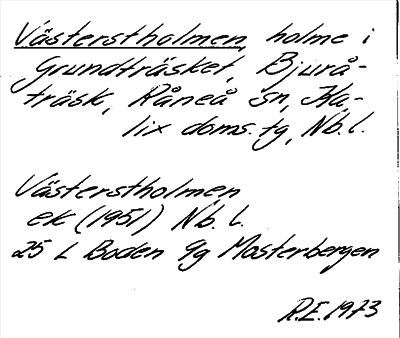 Västerstholmen, holme i
Grundträsket, Bjurå-
träsk, Råneå sn, Ka-
lix doms.tg, Nb.l.
Västerstholmen
ek (1951) Nb. l.
25 L Boden 9g Mosterbergen
R.E. 1973